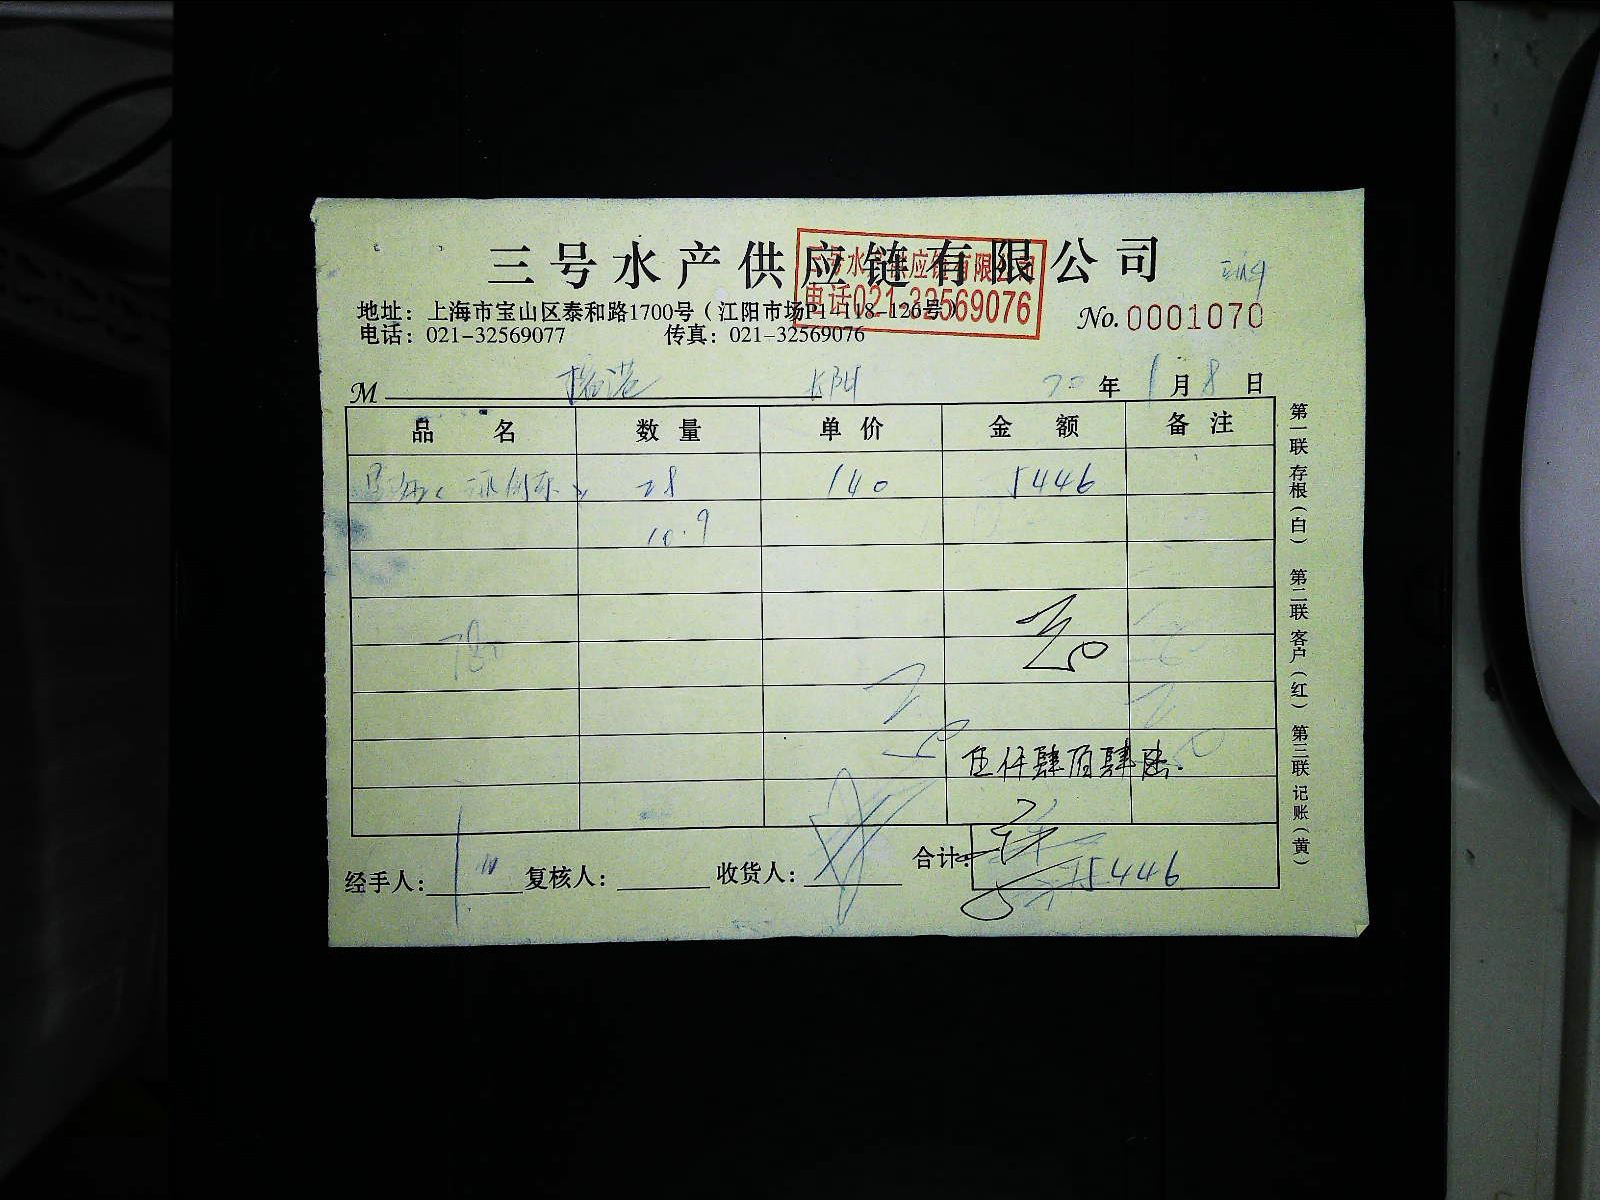 三号水产供应链有限公司
三号水产供应链有限公司
电话021-32569076
地址：上海市宝山区泰和路1700号（江阳市场P1-118-126号）
No.0001070
电话：021-32569077 传真：021-32569076
M
20年1月8日
品名 数量 单价 金额 备注
28 140 5446
10.9
伍仟肆佰肆陆
经手人： 复核人： 收货人： 合计： 5446
第一联 存根（白） 第二联 客户（红） 第三联 记账（黄）